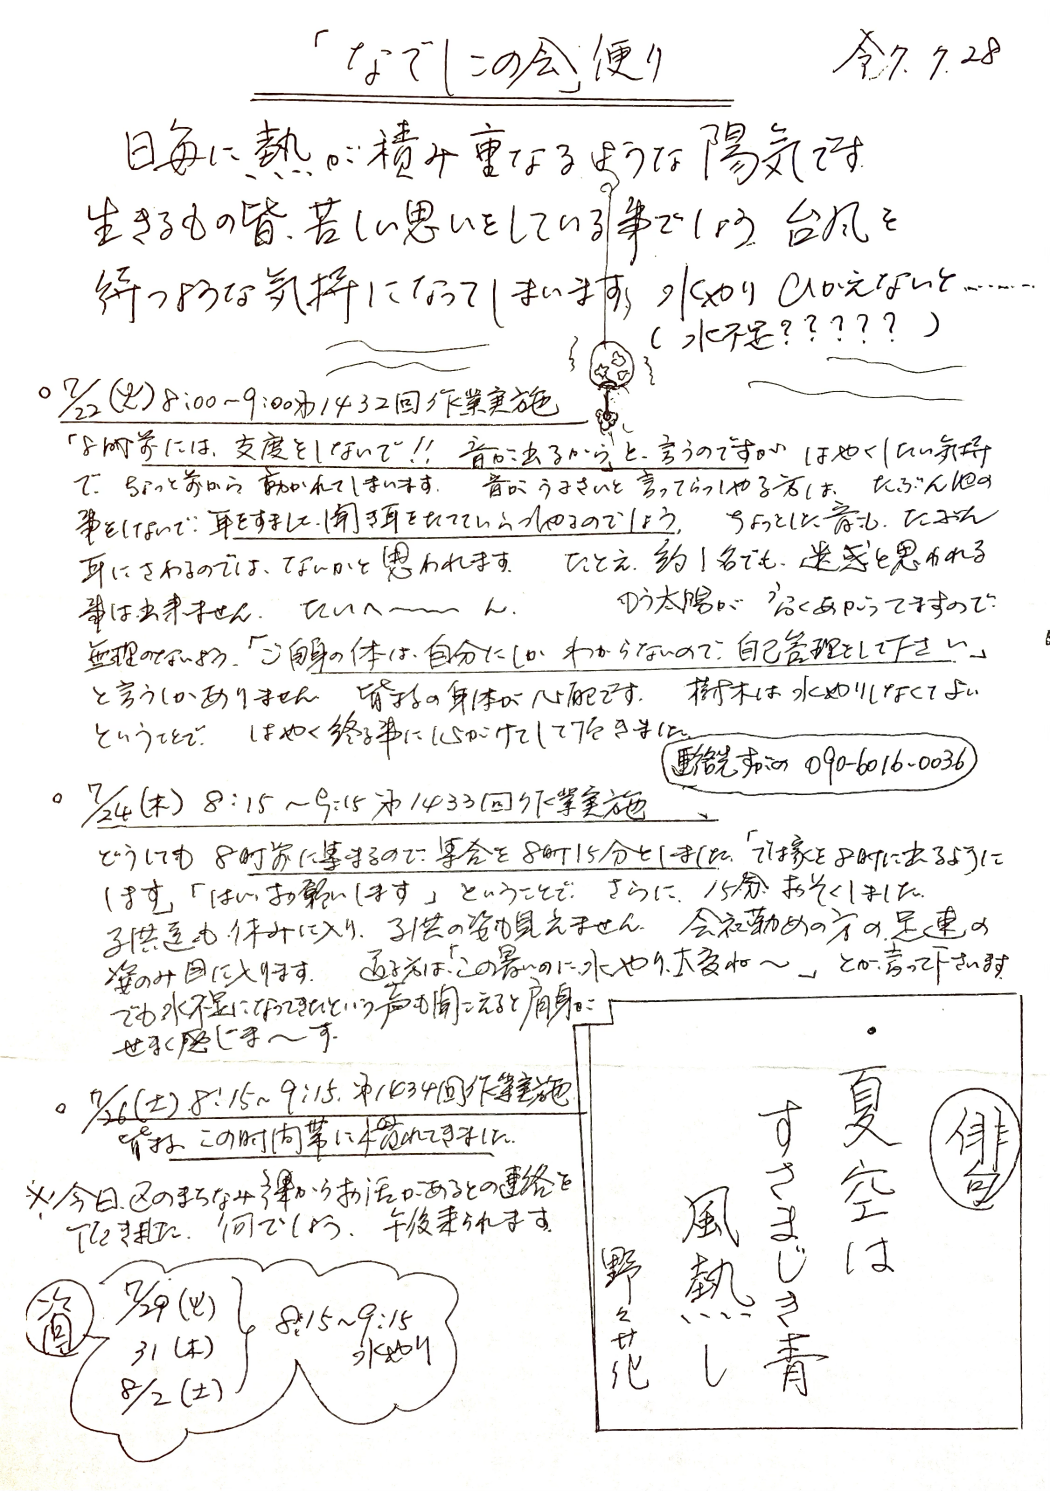 「なでしこの会」便り
令7.7.28
日毎に熱が積み重なるような陽気です
生きるもの皆、苦しい思いをしている事でしょう 台風を
待つような気持になってしまいます、水やりひかえないと………
(水不足?????)
○7/22(火)8:00~9:00第1432回作業実施
「8時前には、支度をしないで!! 音が出るから」と、言うのですが はやくしたい気持
で、ちょっと前から動かれてしまいます。 音がうるさいと言ってらっしゃる方は、たぶん他の
事をしないで、耳をすまし、聞き耳をたてていらっしゃるのでしょう。 ちょっとした音も、たぶん
耳にさわるのでは、ないかと思われます。 たとえ、約1名でも、迷惑と思われる
事は出来ません。 たいへ~~ん。 もう太陽が高くあがってますので
無理のないよう、「ご自身の体は、自分にしかわからないので、自己管理をして下さい」
と言うしかありません 皆さまの身体が心配です。 樹木は水やりしなくてよい
ということで、 はやく終る事に心がけてして頂きました。
連絡先すがの 090-6016-0036
○7/24(木) 8:15~9:15 第1433回作業実施
どうしても8時前に集まるので、集合を8時15分としました、「では家を8時に出るように
します」「はい、お願いします」ということで、さらに、15分おそくしました。
子供達も休みに入り、子供の姿も見えません。 会社勤めの方の足速の
姿のみ目に入ります。 通る方は「この暑いのに、水やり、大変ね~」とか、言って下さいます
でも水不足になってきたという声も聞こえると肩身が
せまく感じま~す。
○7/26(土) 8:15~9:15、第1434回作業実施
皆さま、この時間帯に慣れてきました。
※今日、区のまちなみ課からお話があるとの連絡を
頂きました。何でしょう、 午後来られます。
次回
7/29(火)
31(木)
8/2(土)
8:15~9:15
水やり
俳句
・夏空は
すさまじき青
風熱し
野々花